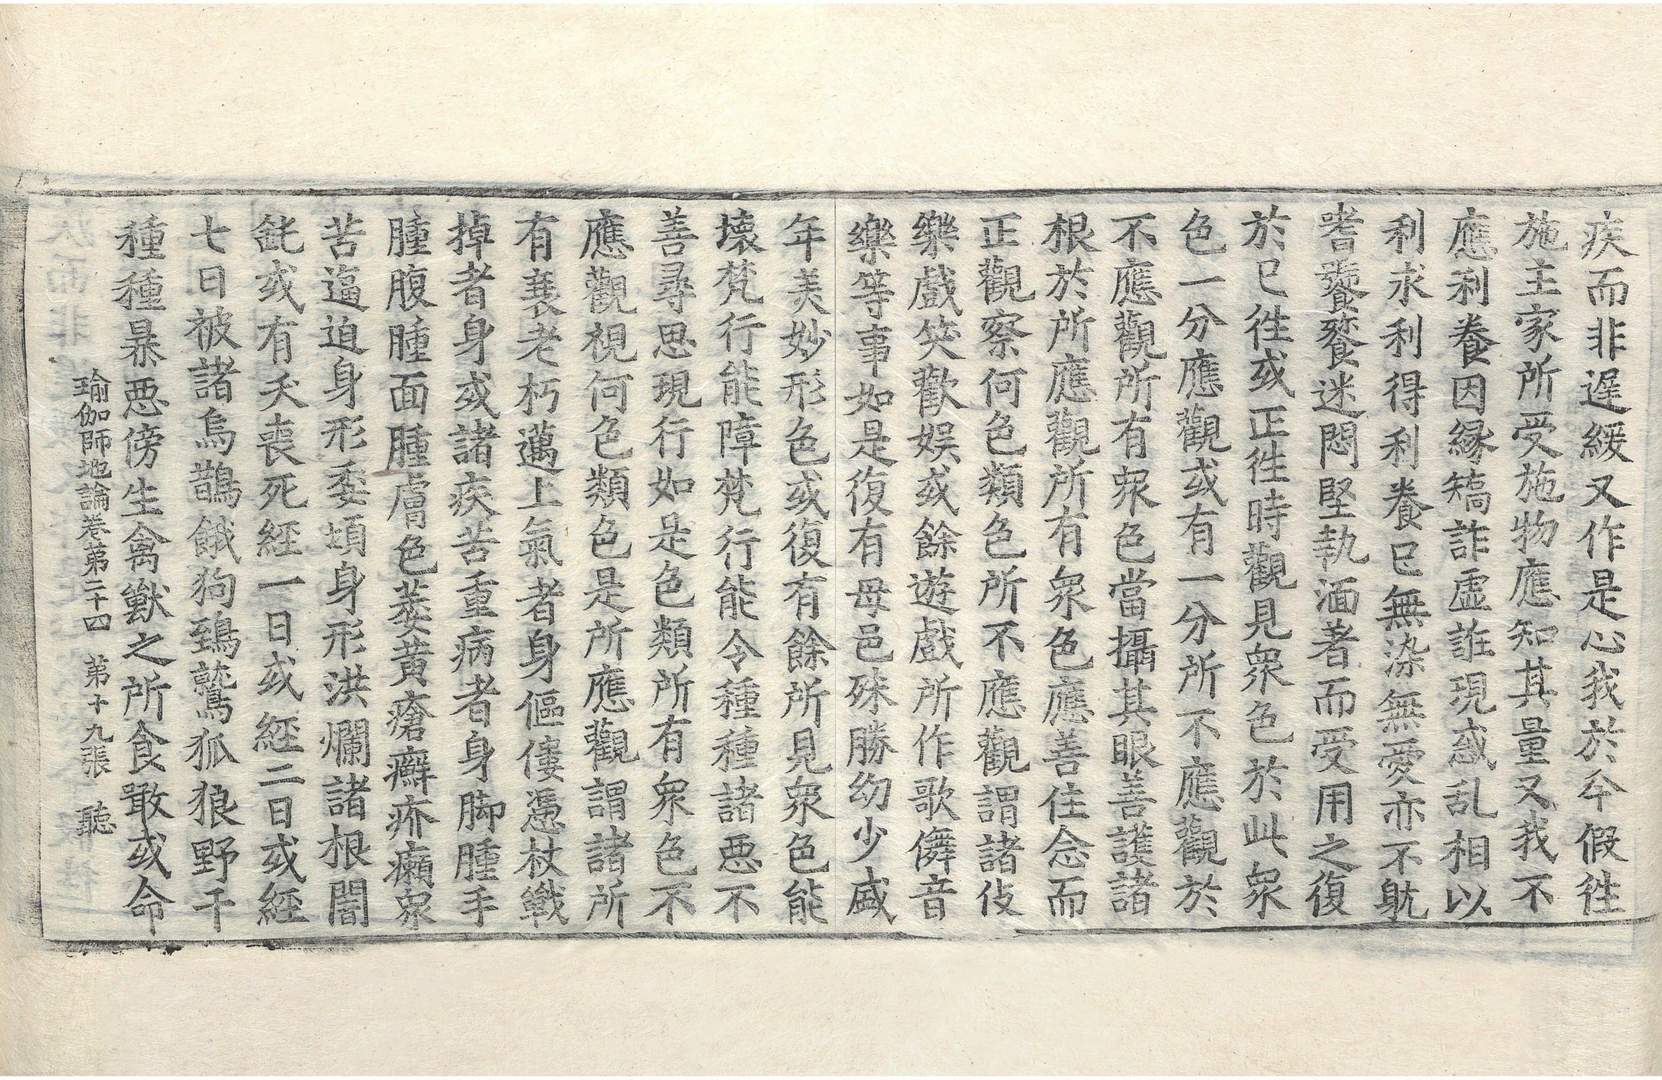 疾而非遅緩又作是心我於今假徃
施主家所受施物應知其量又我不
應利養因縁矯詐虛誑現惑乱相以
利求利得利養已無染無愛亦不躭
嗜饕餮迷悶堅執湎著而受用之復
於已徃或正徃時觀見衆色於此衆
色一分應觀或有一分所不應觀於
不應觀所有衆色當攝其眼善護諸
根於所應觀所有衆色應善住念而
正觀察何色類色所不應觀謂諸伎
樂戲笑歡娱或餘遊戲所作歌儛音
樂等事如是復有母邑殊勝幼少盛
年美妙形色或復有餘所見衆色能
壊梵行能障梵行能令種種諸惡不
善尋思現行如是色類所有衆色不
應觀視何色類色是所應觀謂諸所
有衰老朽邁上氣者身傴僂憑杖戰
掉者身或諸疾苦重病者身脚腫手
腫腹腫面腫膚色萎黃瘡癬疥癩衆
苦逼迫身形委頓身形洪爛諸根闇
鈍或有夭喪死經一日或經二日或經
七日被諸烏鵲餓狗鵄鷲狐狼野干
種種暴惡傍生禽獸之所食噉或命
瑜伽師地論卷第二十四 第十九張 聽